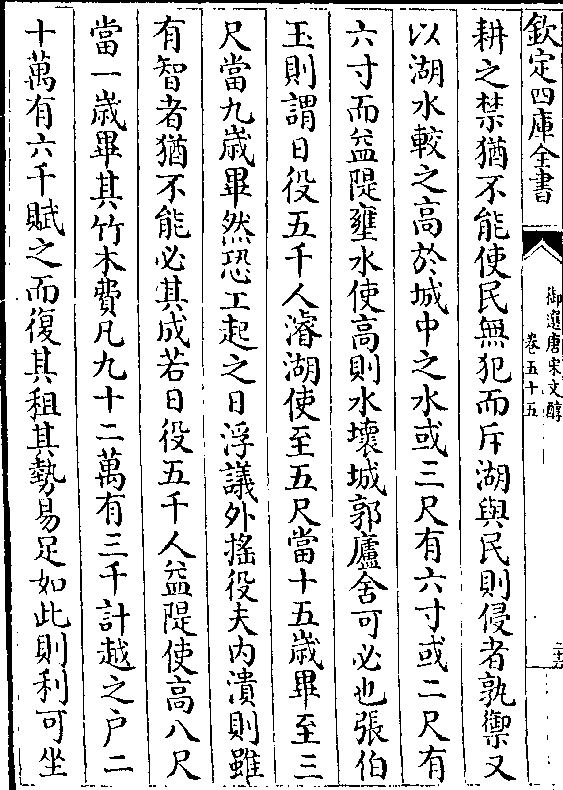 欽定四庫全書
御選唐宋文醇
卷五十五
耕之禁猶不能使民無犯而斥湖與民則侵者孰禦又
以湖水較之髙於城中之水或三尺有六寸或二尺有
六寸而益隄壅水使髙則水壞城郭廬舍可必也張伯
玉則謂日役五千人濬湖使至五尺當十五歲畢至三
尺當九歲畢然恐工起之日浮議外搖役夫内潰則雖
有智者猶不能必其成若日役五千人益隄使髙八尺
當一歲畢其竹木費凡九十二萬有三千計越之户二
十萬有六千賦之而復其租其勢易足如此則利可坐